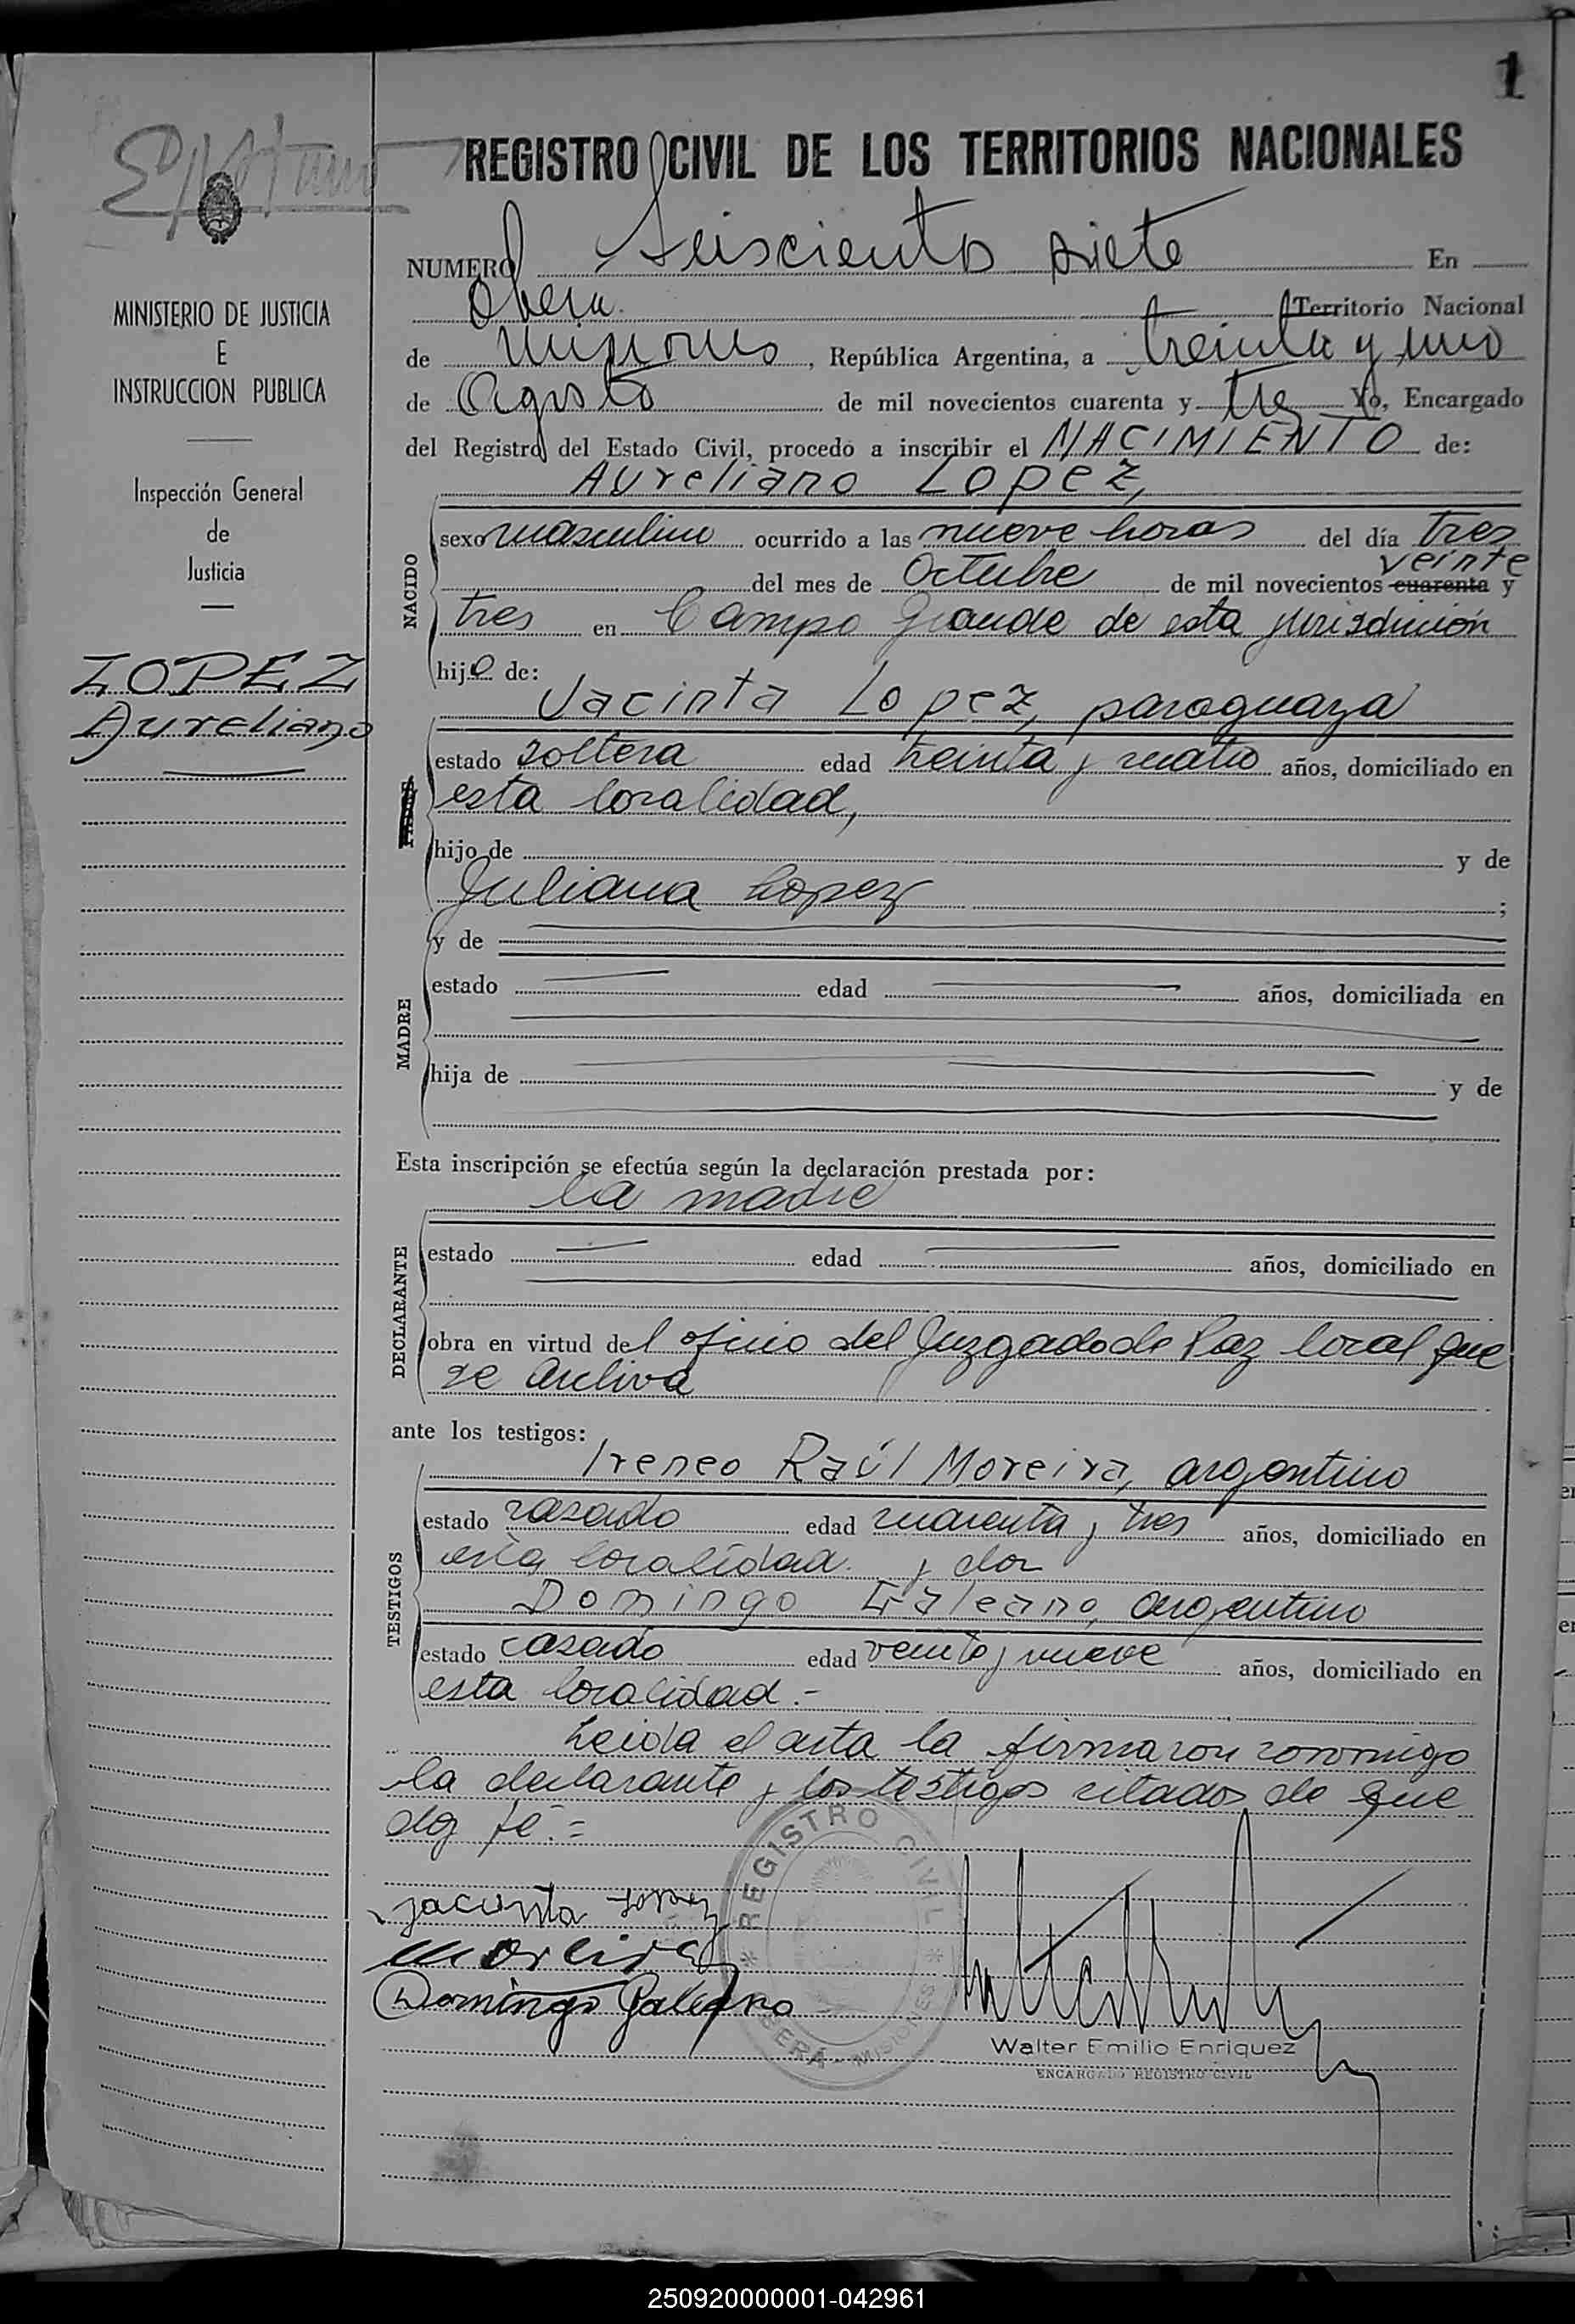 1
REGISTRO CIVIL DE LOS TERRITORIOS NACIONALES
NUMERO Seiscientos siete En
Oberá Territorio Nacional
de Misiones, República Argentina, a treinta y uno
de Agosto de mil novecientos cuarenta y tres Yo, Encargado
del Registro del Estado Civil, procedo a inscribir el NACIMIENTO de:
Aureliano Lopez,
NACIDO
sexo masculino ocurrido a las nueve horas del día tres
veinte
del mes de Octubre de mil novecientos cuarenta y
tres en Campo Grande de esta jurisdicción
hijo de:
Jacinta Lopez, paraguaya
estado soltera edad treinta y cuatro años, domiciliado en
esta localidad,
hijo de y de
Juliana Lopez ;
y de
MADRE
estado edad años, domiciliada en
hija de y de
Esta inscripción se efectúa según la declaración prestada por:
la madre
DECLARANTE
estado edad años, domiciliado en
obra en virtud del oficio del Juzgado de Paz local que
se archiva
ante los testigos:
Ireneo Raúl Moreira, argentino
TESTIGOS
estado casado edad cuarenta y tres años, domiciliado en
esta localidad. y don
Domingo Galeano, argentino
estado casado edad veinte y nueve años, domiciliado en
esta localidad.-
Leida el acta la firmaron conmigo
la declarante y los testigos citados de que
doy fé.=
jacinta Lopez
Moreira
Domingo Galeano
REGISTRO CIVIL
OBERÁ - MISIONES
Walter Emilio Enriquez
ENCARGADO REGISTRO CIVIL
MINISTERIO DE JUSTICIA
E
INSTRUCCION PUBLICA
Inspección General
de
Justicia
LOPEZ
Aureliano
250920000001-042961